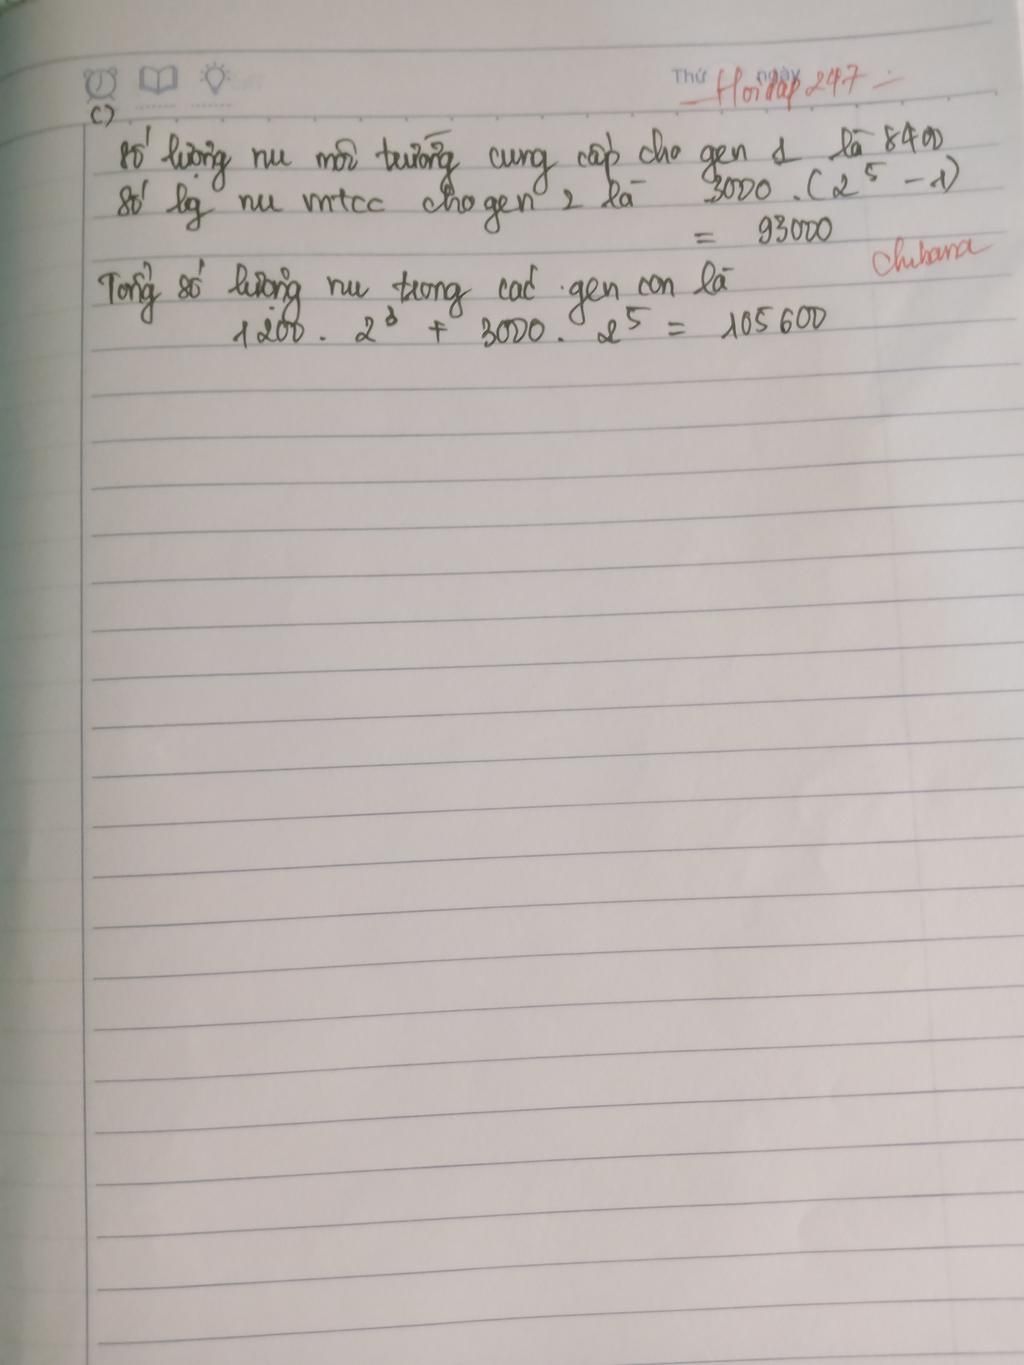 Thứ ngày
Hoidap 247
c)
Số lượng nu môi trường cung cấp cho gen 1 là 8400
Số lg nu mtcc cho gen 2 là 3000 . (2⁵ - 1)
= 93000
chibana
Tổng số lượng nu trong các gen con là
1200 . 2³ + 3000 . 2⁵ = 105600